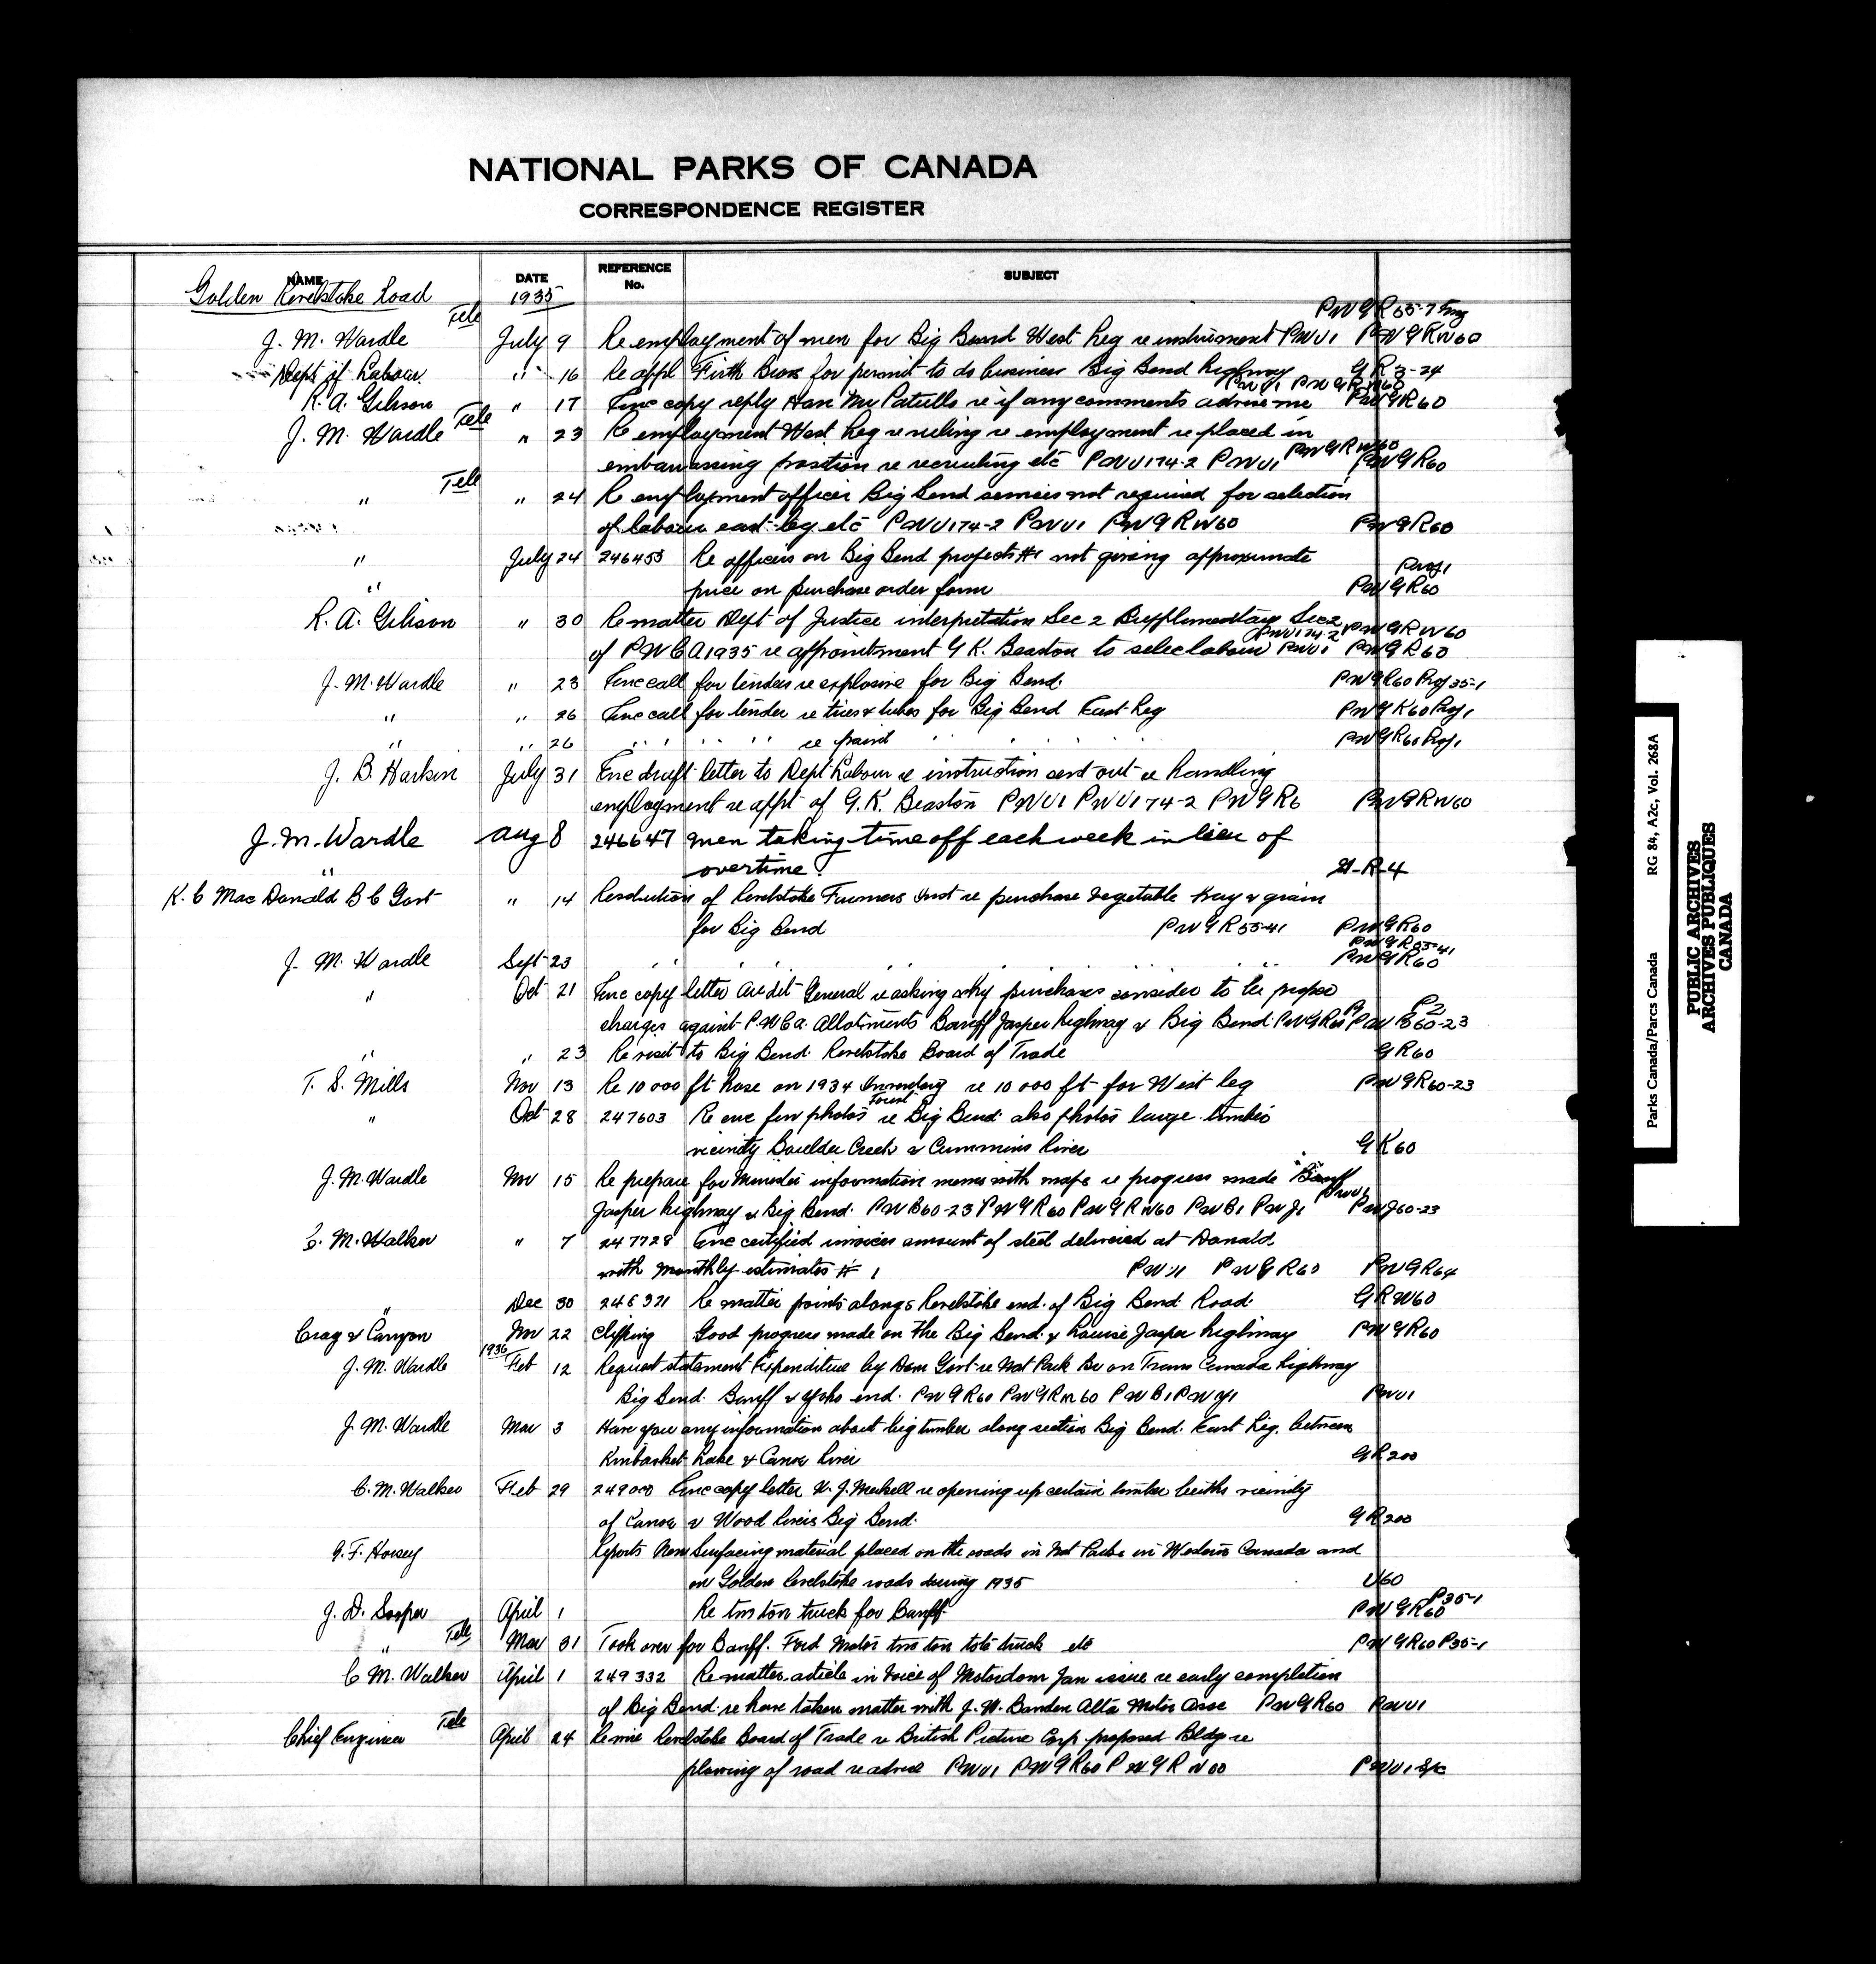 NATIONAL PARKS OF CANADA
CORRESPONDENCE REGISTER
NAME DATE REFERENCE No. SUBJECT
Golden Revelstoke Road 1935
PW G R 55-7
J. M. Wardle Tele July 9 Re employment of men for Big Bend West Leg re instrument PWU1 PW G RW60
Dept of Labour " 16 Re appl Firth Bros for permit to do business Big Bend highway G R 3-24
PWU1 PW G RW60
R. A. Gibson " 17 Enc copy reply Hon Mr Patullo re if any comments advise me PW G R60
J. M. Wardle Tele " 23 Re employment West Leg re ruling re employment re placed in
embarrassing position re recruiting etc PWU174-2 PWU1 PW G RW60 PW G R60
" Tele " 24 Re employment officer Big Bend services not required for selection
of labour east leg etc PWU174-2 PWU1 PW G RW60 PW G R60
" July 24 246455 Re officers on Big Bend projects #1 not giving approximate
price on purchase order form Proj 1 PW G R60
R. A. Gibson " 30 Re matter Dept of Justice interpretation Sec 2 Supplementary Sec 2 PW G RW60
of PWCA 1935 re appointment G K. Beaston to select labour PWU174-2 PWU1 PW G R60
J. M. Wardle " 23 Enc call for tenders re explosive for Big Bend. PW G R60 Proj 35-1
" " 26 Enc call for tender re tires & tubes for Big Bend East Leg PW G R60 Proj 1
" " 26 " " " " re paint " " " " PW G R60 Proj 1
J. B. Harkin July 31 Enc draft letter to Dept Labour re instruction sent out re handling
employment re appt of G. K. Beaston PWU1 PWU174-2 PW G R6 PW G RW60
J. M. Wardle Aug 8 246647 men taking time off each week in lieu of
overtime. G-R-4
K. C Mac Donald B C Govt " 14 Resolution of Revelstoke Farmers Inst re purchase vegetable hay & grain
for Big Bend PW G R55-41 PW G R60
PW G R55-41
J. M. Wardle Sept 23 " " " " " PW G R60
" Oct 21 Enc copy letter Audit General re asking why purchases consider to be proper
charges against P.W.C.A. Allotments Banff Jasper highway & Big Bend PW G R60 PW B60-23
" " 23 Re visit to Big Bend. Revelstoke Board of Trade G R60
T. S. Mills Nov 13 Re 10 000 ft hose on 1934 Inventory re 10 000 ft for West leg PW G R60-23
" Oct 28 247603 Re enc few photos Forest re Big Bend. also photos large timber
vicinity Boulder Creek & Cummins River G R 60
J. M. Wardle Nov 15 Re prepare for Minister information memo with maps re progress made Banff
Jasper highway & Big Bend. PW B60-23 PW G R60 PW G RW60 PW B1 PW J1 PWU1 PW J60-23
C. M. Walker " 7 247728 Enc certified invoices amount of steel delivered at Donald.
with Monthly estimates # 1 PWU1 PW G R60 PW G R64
" Dec 30 248321 Re matter points along Revelstoke end of Big Bend Road. G R W60
Crag & Canyon Nov 22 Clipping Good progress made on the Big Bend & Louise Jasper highway PW G R60
J. M. Wardle 1936 Feb 12 Request statement Expenditure by Dom Govt re Nat Park Br on Trans Canada highway
Big Bend. Banff & Yoho end. PW G R60 PW G RW60 PW B1 PW Y1 PWU1
J. M. Wardle Mar 3 Have you any information about big timber along section Big Bend. East Leg. between
Kinbasket Lake & Canoe River G R 200
C. M. Walker Feb 29 Enc copy letter re opening up certain timber berths vicinity
of Canoe & Wood Rivers Big Bend. G R 200
G. F. Horsey Reports New Surfacing material placed on the roads in Nat Parks in Western Canada and
on Golden Revelstoke roads during 1935 U60
J. D. Soper April 1 Re two ton truck for Banff. PW G R60 P35-1
" Tele Mar 31 Took over for Banff. Ford Motor two ton tote truck etc PW G R60 P35-1
C M. Walker April 1 249332 Re matter article in Voice of Motordom Jan issue re early completion
of Big Bend. re have taken matter with J. W. Alta Motor Assc PW G R60 PWU1
Chief Engineer Tele April 24 Re wire Revelstoke Board of Trade re British Picture Corp proposed Bldg re
plowing of road re advise PWU1 PW G R60 PW G R W60 PWU1
RG 84, A2c, Vol. 268A
Parks Canada/Parcs Canada
PUBLIC ARCHIVES
ARCHIVES PUBLIQUES
CANADA